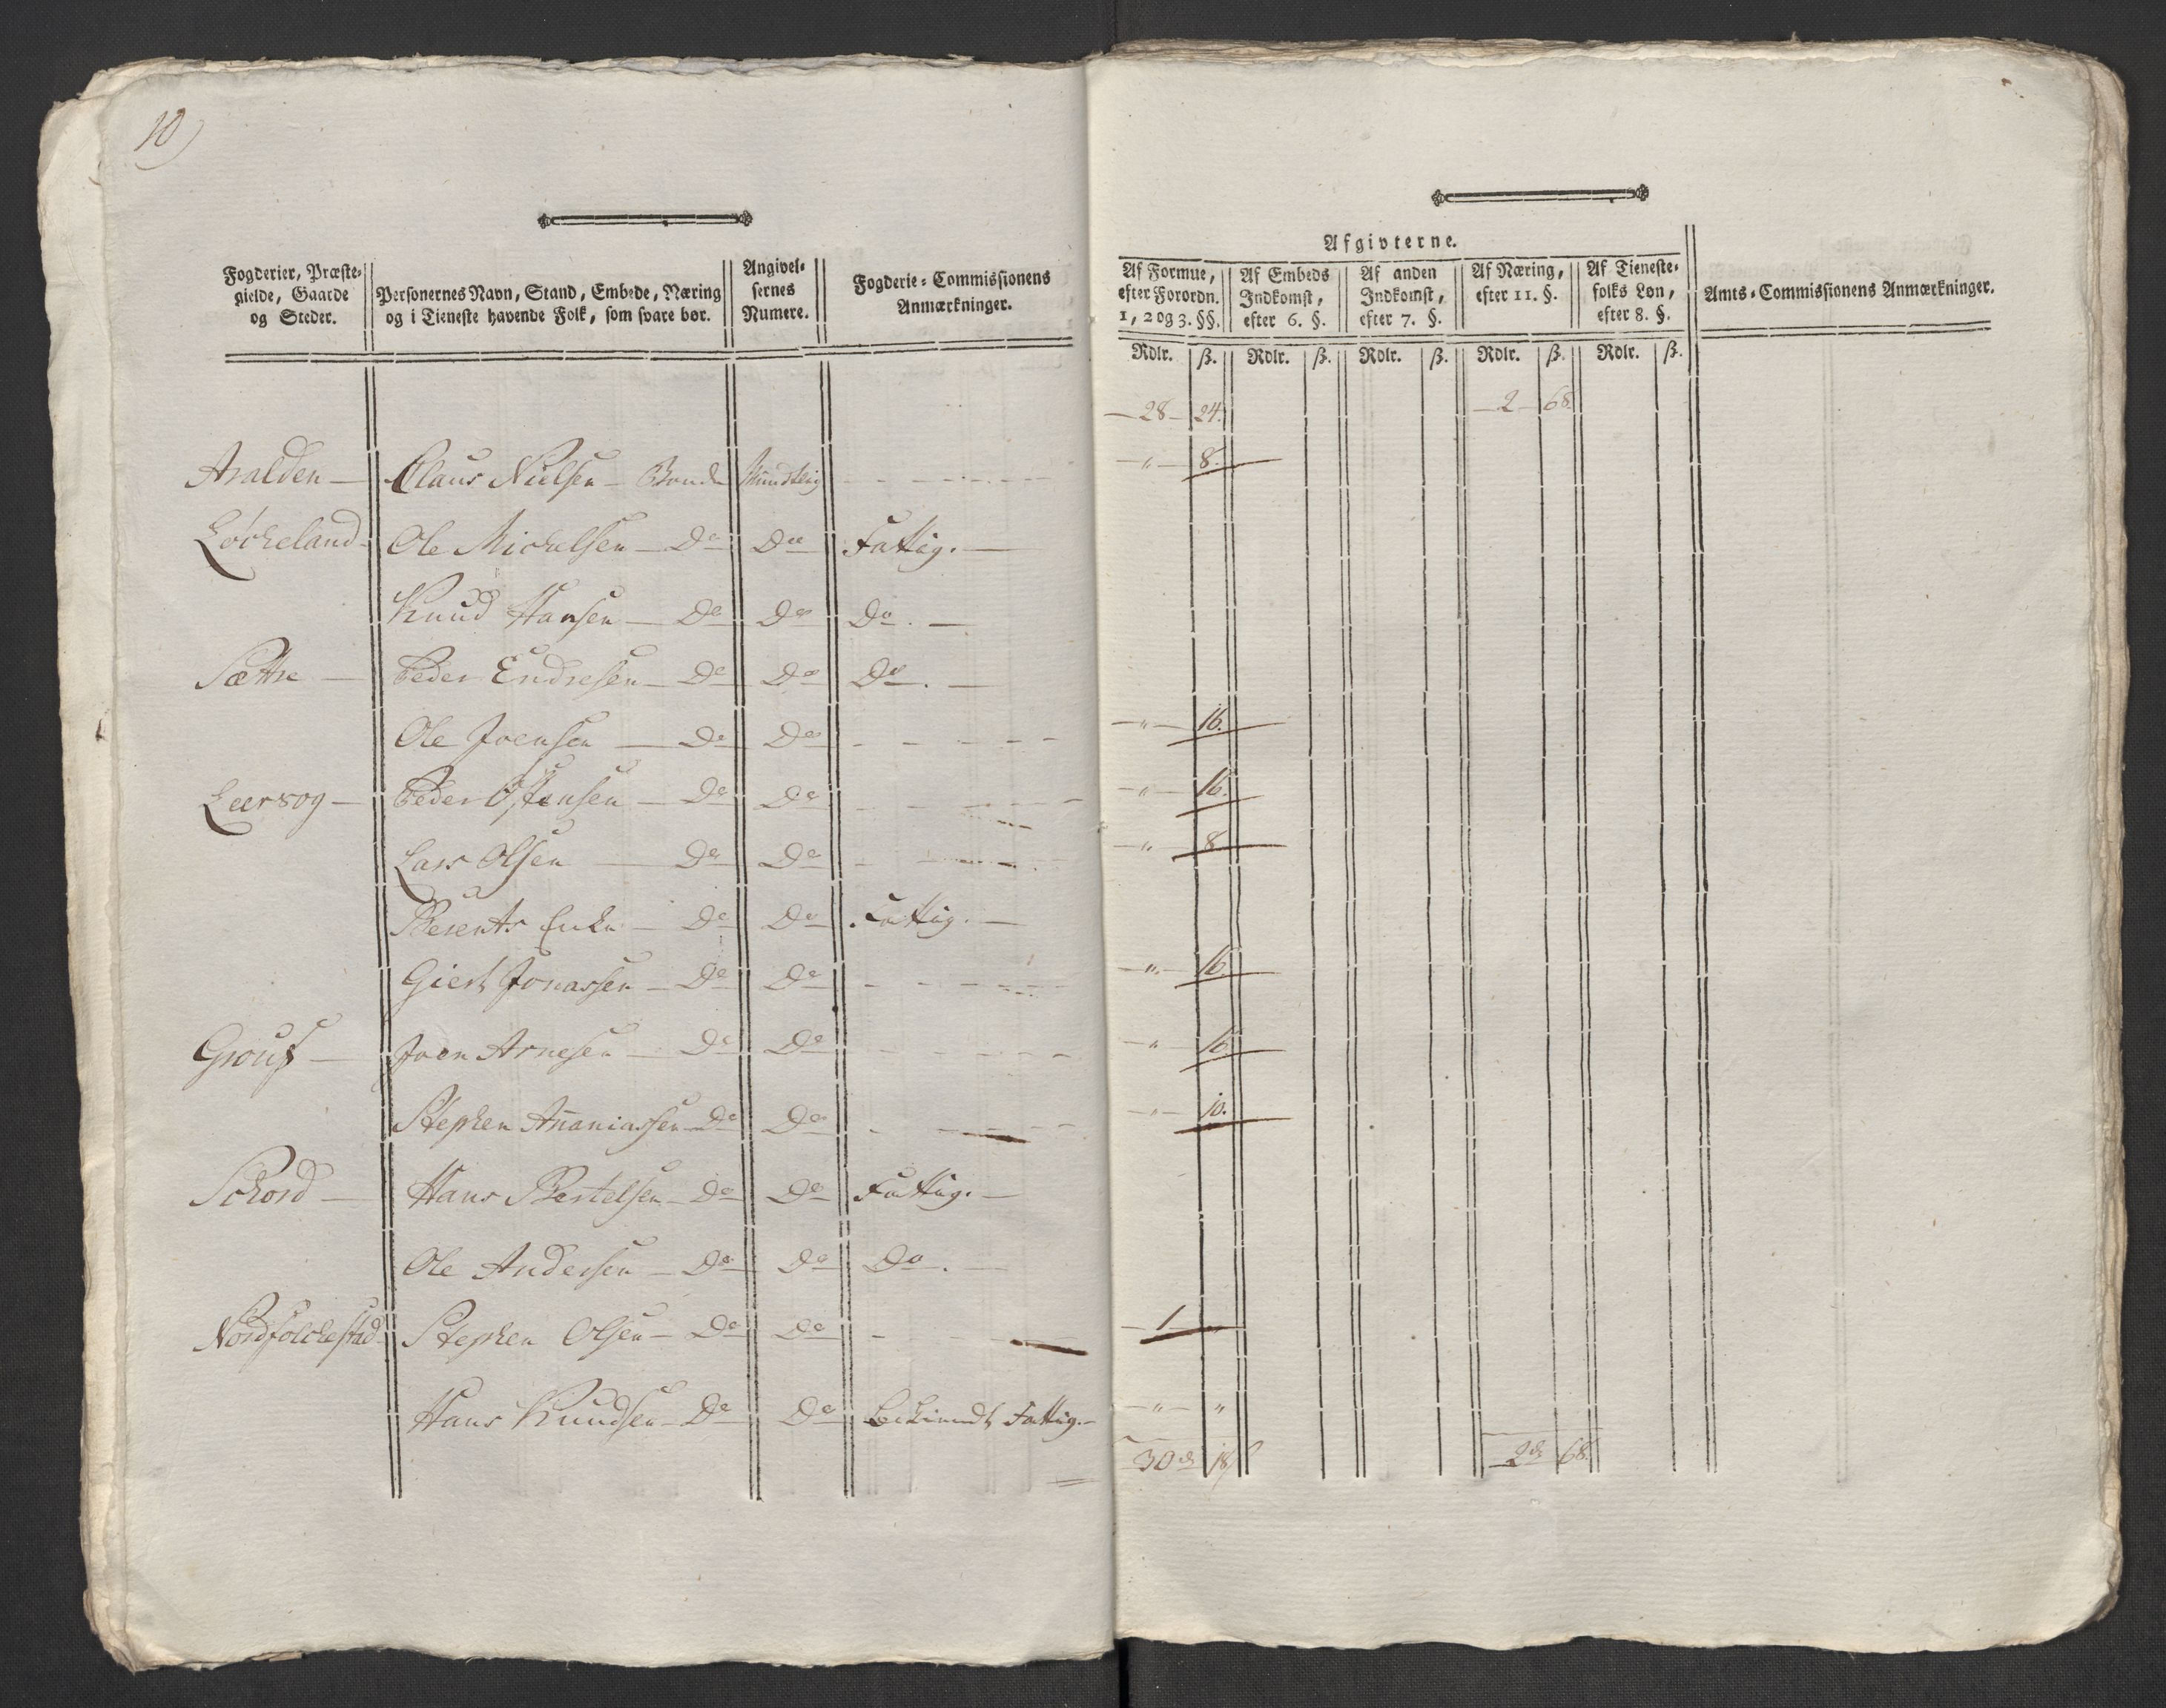 10)
Fogderier, Præste-
gielde, Gaarde
og Steder.
Personernes Navn, Stand, Embede, Næring
og i Tieneste havende Folk, som svare bør.
Angivel-
sernes
Numere.
Fogderie-Commissionens
Anmærkninger.
Afgivterne.
Af Formue,
efter Forordn.
1, 2 og 3. §§.
Af Embeds
Indkomst,
efter 6. §.
Af anden
Indkomst,
efter 7. §.
Af Næring,
efter 11. §.
Af Tieneste-
folks Løn,
efter 8. §.
Amts-Commissionens Anmærkninger.
Rdlr. ß. Rdlr. ß. Rdlr. ß. Rdlr. ß. Rdlr. ß.
— 28 — 24. — 2 — 68.
Aralden — Claus Nielsen — Bonde Mundtlig - - - - — " — 8.
Løcheland — Ole Michelsen — Do Do Fattig. —
Knud Hansen — Do Do Do. —
Sættre — Peder Endresen — Do Do Do. —
Ole Joensen — Do Do - - - - — " — 16.
Leersog — Peder Østensen — Do Do - - - - — " — 16.
Lars Olsen — Do Do - - - - — " — 8
Berents Enke — Do Do Fattig. —
Giert Jonassen — Do Do - - - - — " — 16
Grouf — Joen Arnesen — Do Do - - - - — " — 16.
Stephen Ananiassen — Do Do - - - - — " — 10.
Schord — Hans Bertelsen — Do Do Fattig. —
Ole Andersen — Do Do Do. —
Nordfolchestad Stephen Olsen — Do Do - — 1 —
Hans Knudsen — Do Do bekiendt Fattig. — — " — "
30 rd 18 ß 2 rd 68.